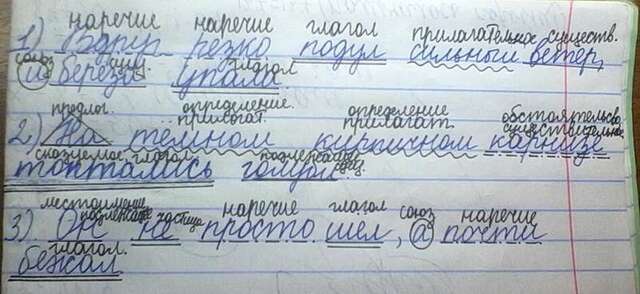 наречие наречие глагол прилагательное существ.
1) Вдруг резко подул сильный ветер,
союз сущ. глагол
и береза упала.
предлог. определение определение обстоятельсво
прилагат. прилагат существительное
2) На темном кирпичном карнизе
сказуемое глагол. подлежащее сущ.
топтались голуби.
местоимение наречие глагол союз наречие
подлежащее частица
3) Он не просто шел, а почти
глагол.
бежал